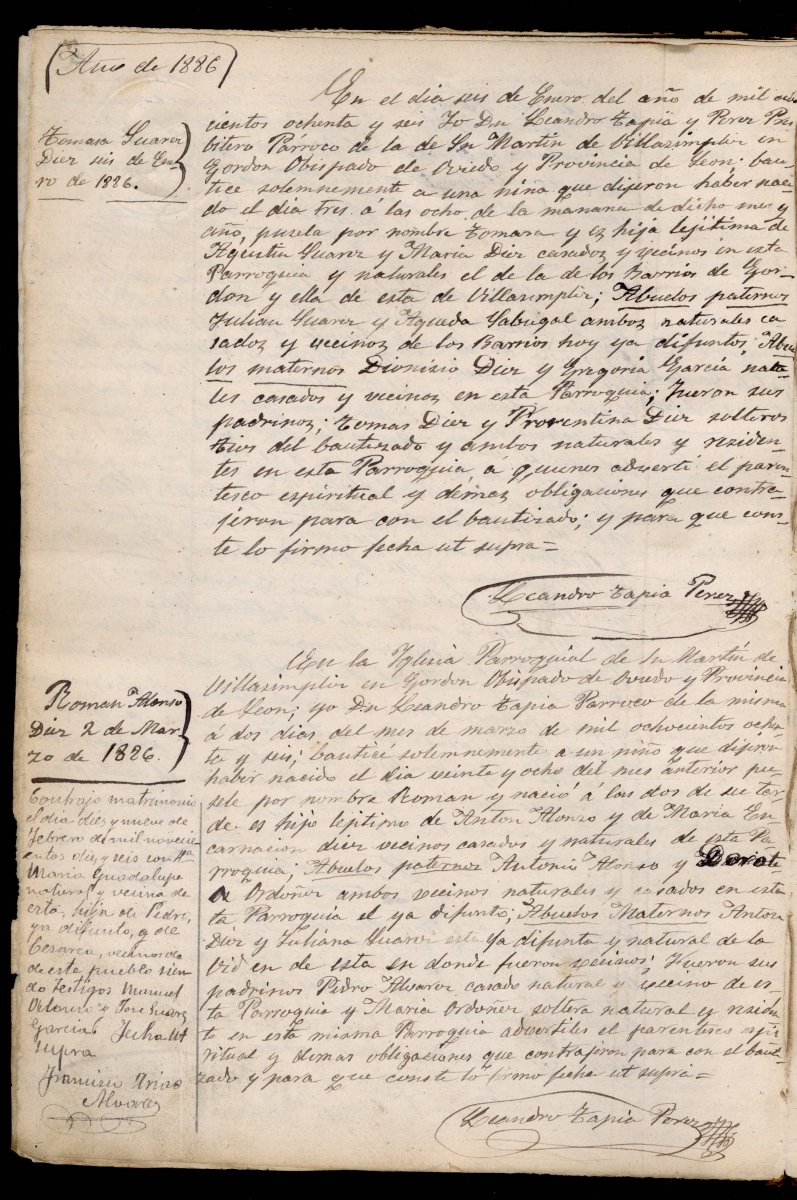 Año de 1886
Tomasa Suarez
Diez seis de Ene-
ro de 1886.
En el dia seis de Enero del año de mil ocho
cientos ochenta y seis Yo Dn Leandro Tapia y Perez Pres
bitero Párroco de la de Sn Martin de Villasimpliz en
Gordon Obispado de Oviedo y Provincia de Leon; bau-
tice solemnemente a una niña que dijeron haber naci
do el dia tres á las ocho de la mañana de dicho mes y
año, pusela por nombre Tomasa y es hija lejitima de
Agustin Suarez y Maria Diez casados y vecinos en esta
Parroquia y naturales el de la de los Barrios de Gor-
don y ella de esta de Villasimpliz; Abuelos paternos
Julian Suarez y Agueda Sabugal ambos naturales ca
sados y vecinos de los Barrios hoy ya difuntos; Abue
los maternos Dionisio Diez y Gregoria García natu-
les casados y vecinos en esta Parroquia; fueron sus
padrinos; Tomas Diez y Prorentina Diez solteros
tios del bautizado y ambos naturales y residen-
tes en esta Parroquia a quienes advertí el paren-
tesco espiritual y démas obligaciones que contra-
jeron para con el bautizado; y para que cons-
te lo firmo fecha ut supra=
Leandro Tapia Perez
Roman Alonso
Diez 2 de Mar-
zo de 1886.
En la Iglesia Parroquial de Sn Martín de
Villasimpliz en Gordon Obispado de Oviedo y Provincia
de Leon; yo Dn Leandro Tapia Parroco de la misma
á dos dias del mes de marzo de mil ochocientos ochen
ta y seis; bauticé solemnemente a un niño que dijeron
haber nacido el dia veinte y ocho del mes anterior pu-
sele por nombre Roman y nació á las dos de su tar-
de. es hijo lejitimo de Anton Alonso y de Maria En
carnacion diez vecinos casados y naturales de esta Pa
rroquia; Abuelos paternos Antonio Alonso y Dorot-
a Ordoñez ambos vecinos naturales y casados en esta
ta Parroquia el ya difunto; Abuelos Maternos Anton
Diez y Juliana Suarez esta ya difunta y natural de la
Vid en de esta en donde fueron vecinos; Fueron sus
padrinos Pidro Alvarez casado natural y vecino de es-
ta Parroquia y Maria Ordoñez soltera natural y residen
te en esta misma Parroquia advertiles el parentesco espi
ritual y demas obligaciones que contrajeron para con el bauti-
zado y para que conste lo firmo fecha ut supra=
Leandro Tapia Perez
Contrajo matrimonio
el dia diez y nueve de
Febrero de mil novecie-
entos diez y seis con Mª
Maria Guadalupe
natural y vecina de
esta, hija de Pedro,
ya difunto, y de
Cesarea, vecinos de
de este pueblo sien-
do testigos Manuel
Alonso y Jose Suarez
Garcia Fecha ut
supra
Francisco Arias
Alvarez